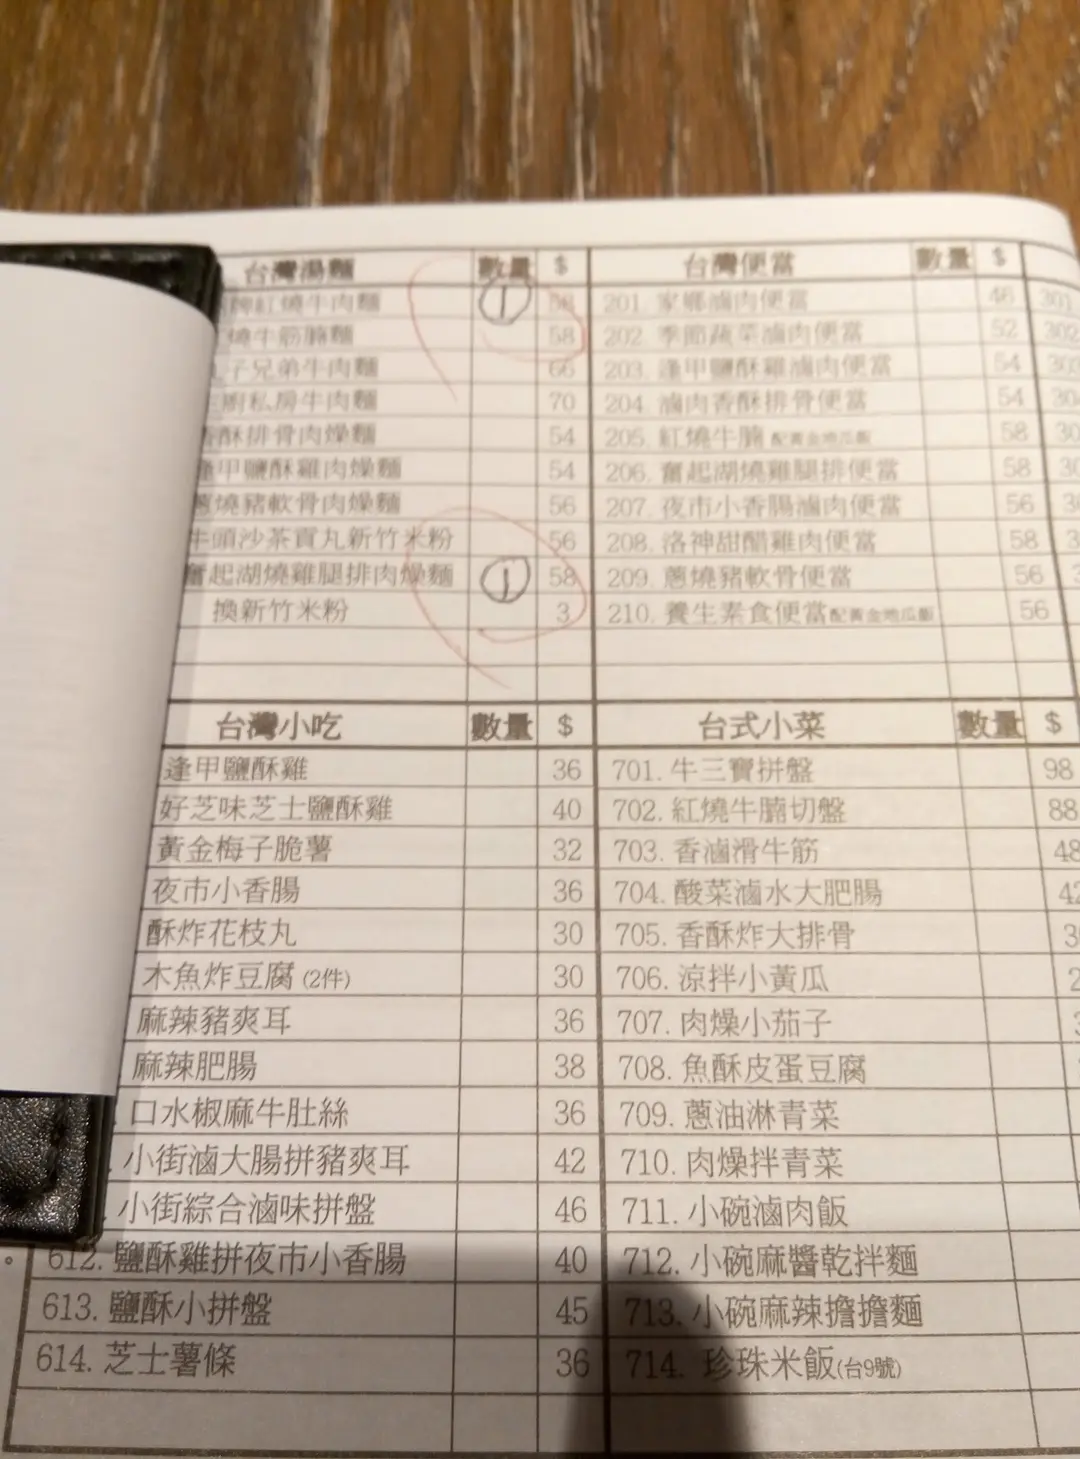 台灣湯麵 數量 $
牌紅燒牛肉麵 ① 58
燒牛筋腩麵 58
子兄弟牛肉麵 66
廚私房牛肉麵 70
香酥排骨肉燥麵 54
逢甲鹽酥雞肉燥麵 54
蔥燒豬軟骨肉燥麵 56
牛頭沙茶貢丸新竹米粉 56
奮起湖燒雞腿排肉燥麵 ① 58
換新竹米粉 3
台灣便當 數量 $
201. 家鄉滷肉便當 46
202. 季節蔬菜滷肉便當 52
203. 逢甲鹽酥雞滷肉便當 54
204. 滷肉香酥排骨便當 54
205. 紅燒牛腩 配黃金地瓜飯 58
206. 奮起湖燒雞腿排便當 58
207. 夜市小香腸滷肉便當 56
208. 洛神甜醋雞肉便當 58
209. 蔥燒豬軟骨便當 56
210. 養生素食便當 配黃金地瓜飯 56
301
302
303
台灣小吃 數量 $
逢甲鹽酥雞 36
好芝味芝士鹽酥雞 40
黃金梅子脆薯 32
夜市小香腸 36
酥炸花枝丸 30
木魚炸豆腐 (2件) 30
麻辣豬爽耳 36
麻辣肥腸 38
口水椒麻牛肚絲 36
小街滷大腸拼豬爽耳 42
小街綜合滷味拼盤 46
612. 鹽酥雞拼夜市小香腸 40
613. 鹽酥小拼盤 45
614. 芝士薯條 36
台式小菜 數量 $
701. 牛三寶拼盤 98
702. 紅燒牛腩切盤 88
703. 香滷滑牛筋 48
704. 酸菜滷水大肥腸 42
705. 香酥炸大排骨
706. 涼拌小黃瓜
707. 肉燥小茄子
708. 魚酥皮蛋豆腐
709. 蔥油淋青菜
710. 肉燥拌青菜
711. 小碗滷肉飯
712. 小碗麻醬乾拌麵
713. 小碗麻辣擔擔麵
714. 珍珠米飯(台9號)